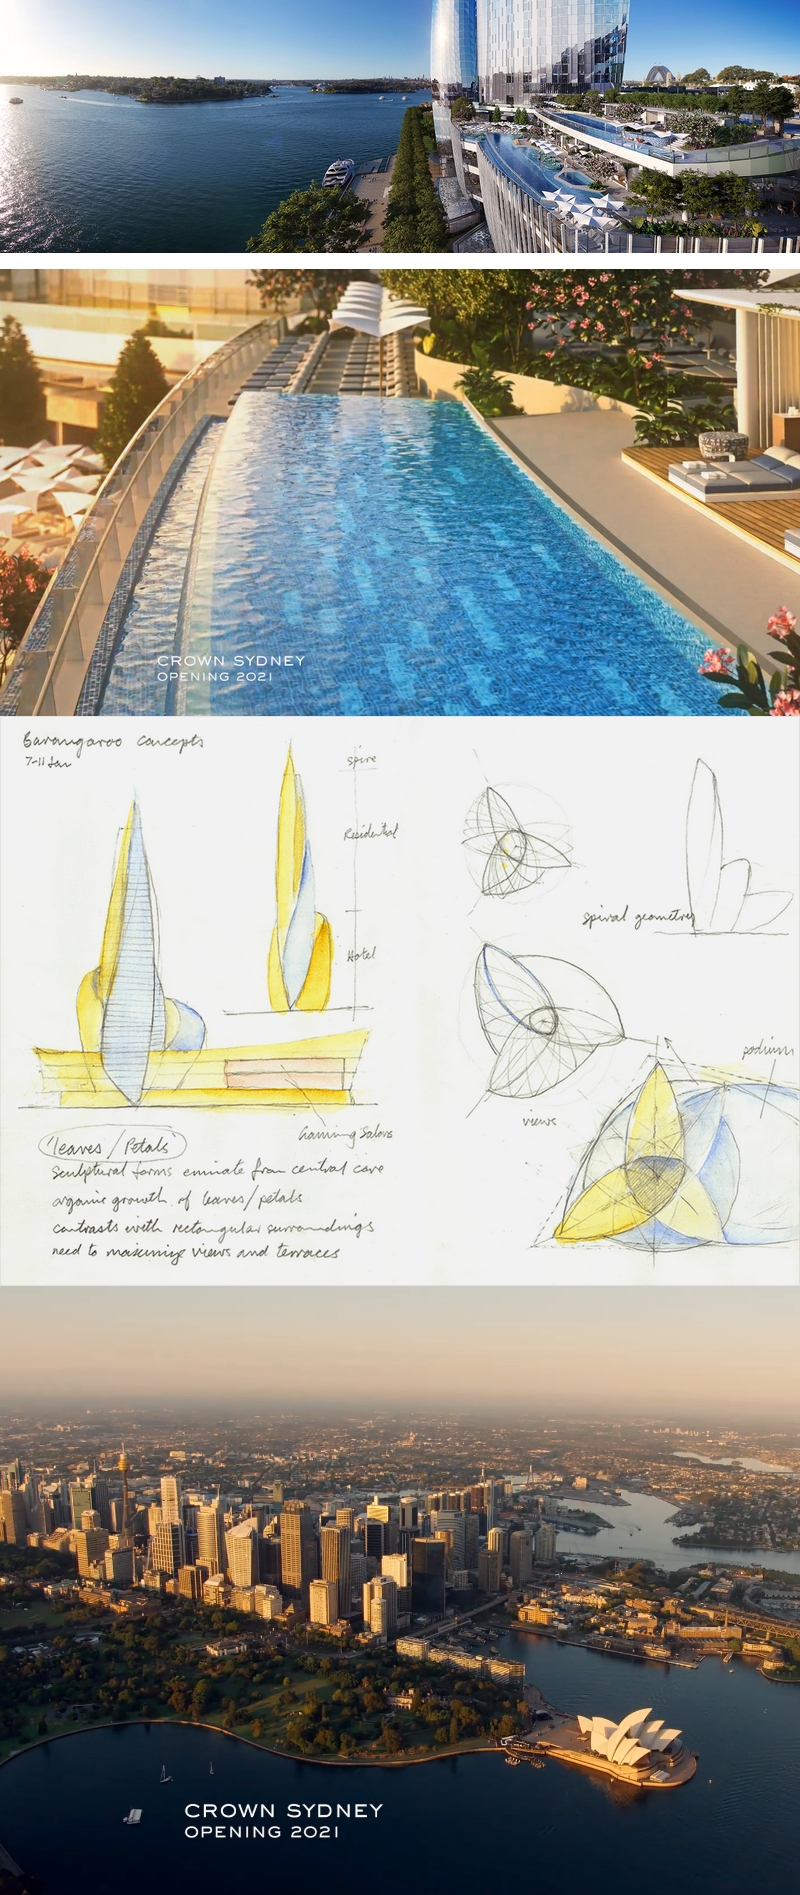 CROWN SYDNEY
OPENING 2021
Barangaroo Concepts
7-11 Jan
spire
Residential
Hotel
spiral geometry
podium
views
Gaming Salons
'leaves / Petals'
Sculptural forms eminate from central core
organic growth of leaves/petals
contrasts with rectangular surroundings
need to maximise views and terraces
CROWN SYDNEY
OPENING 2021